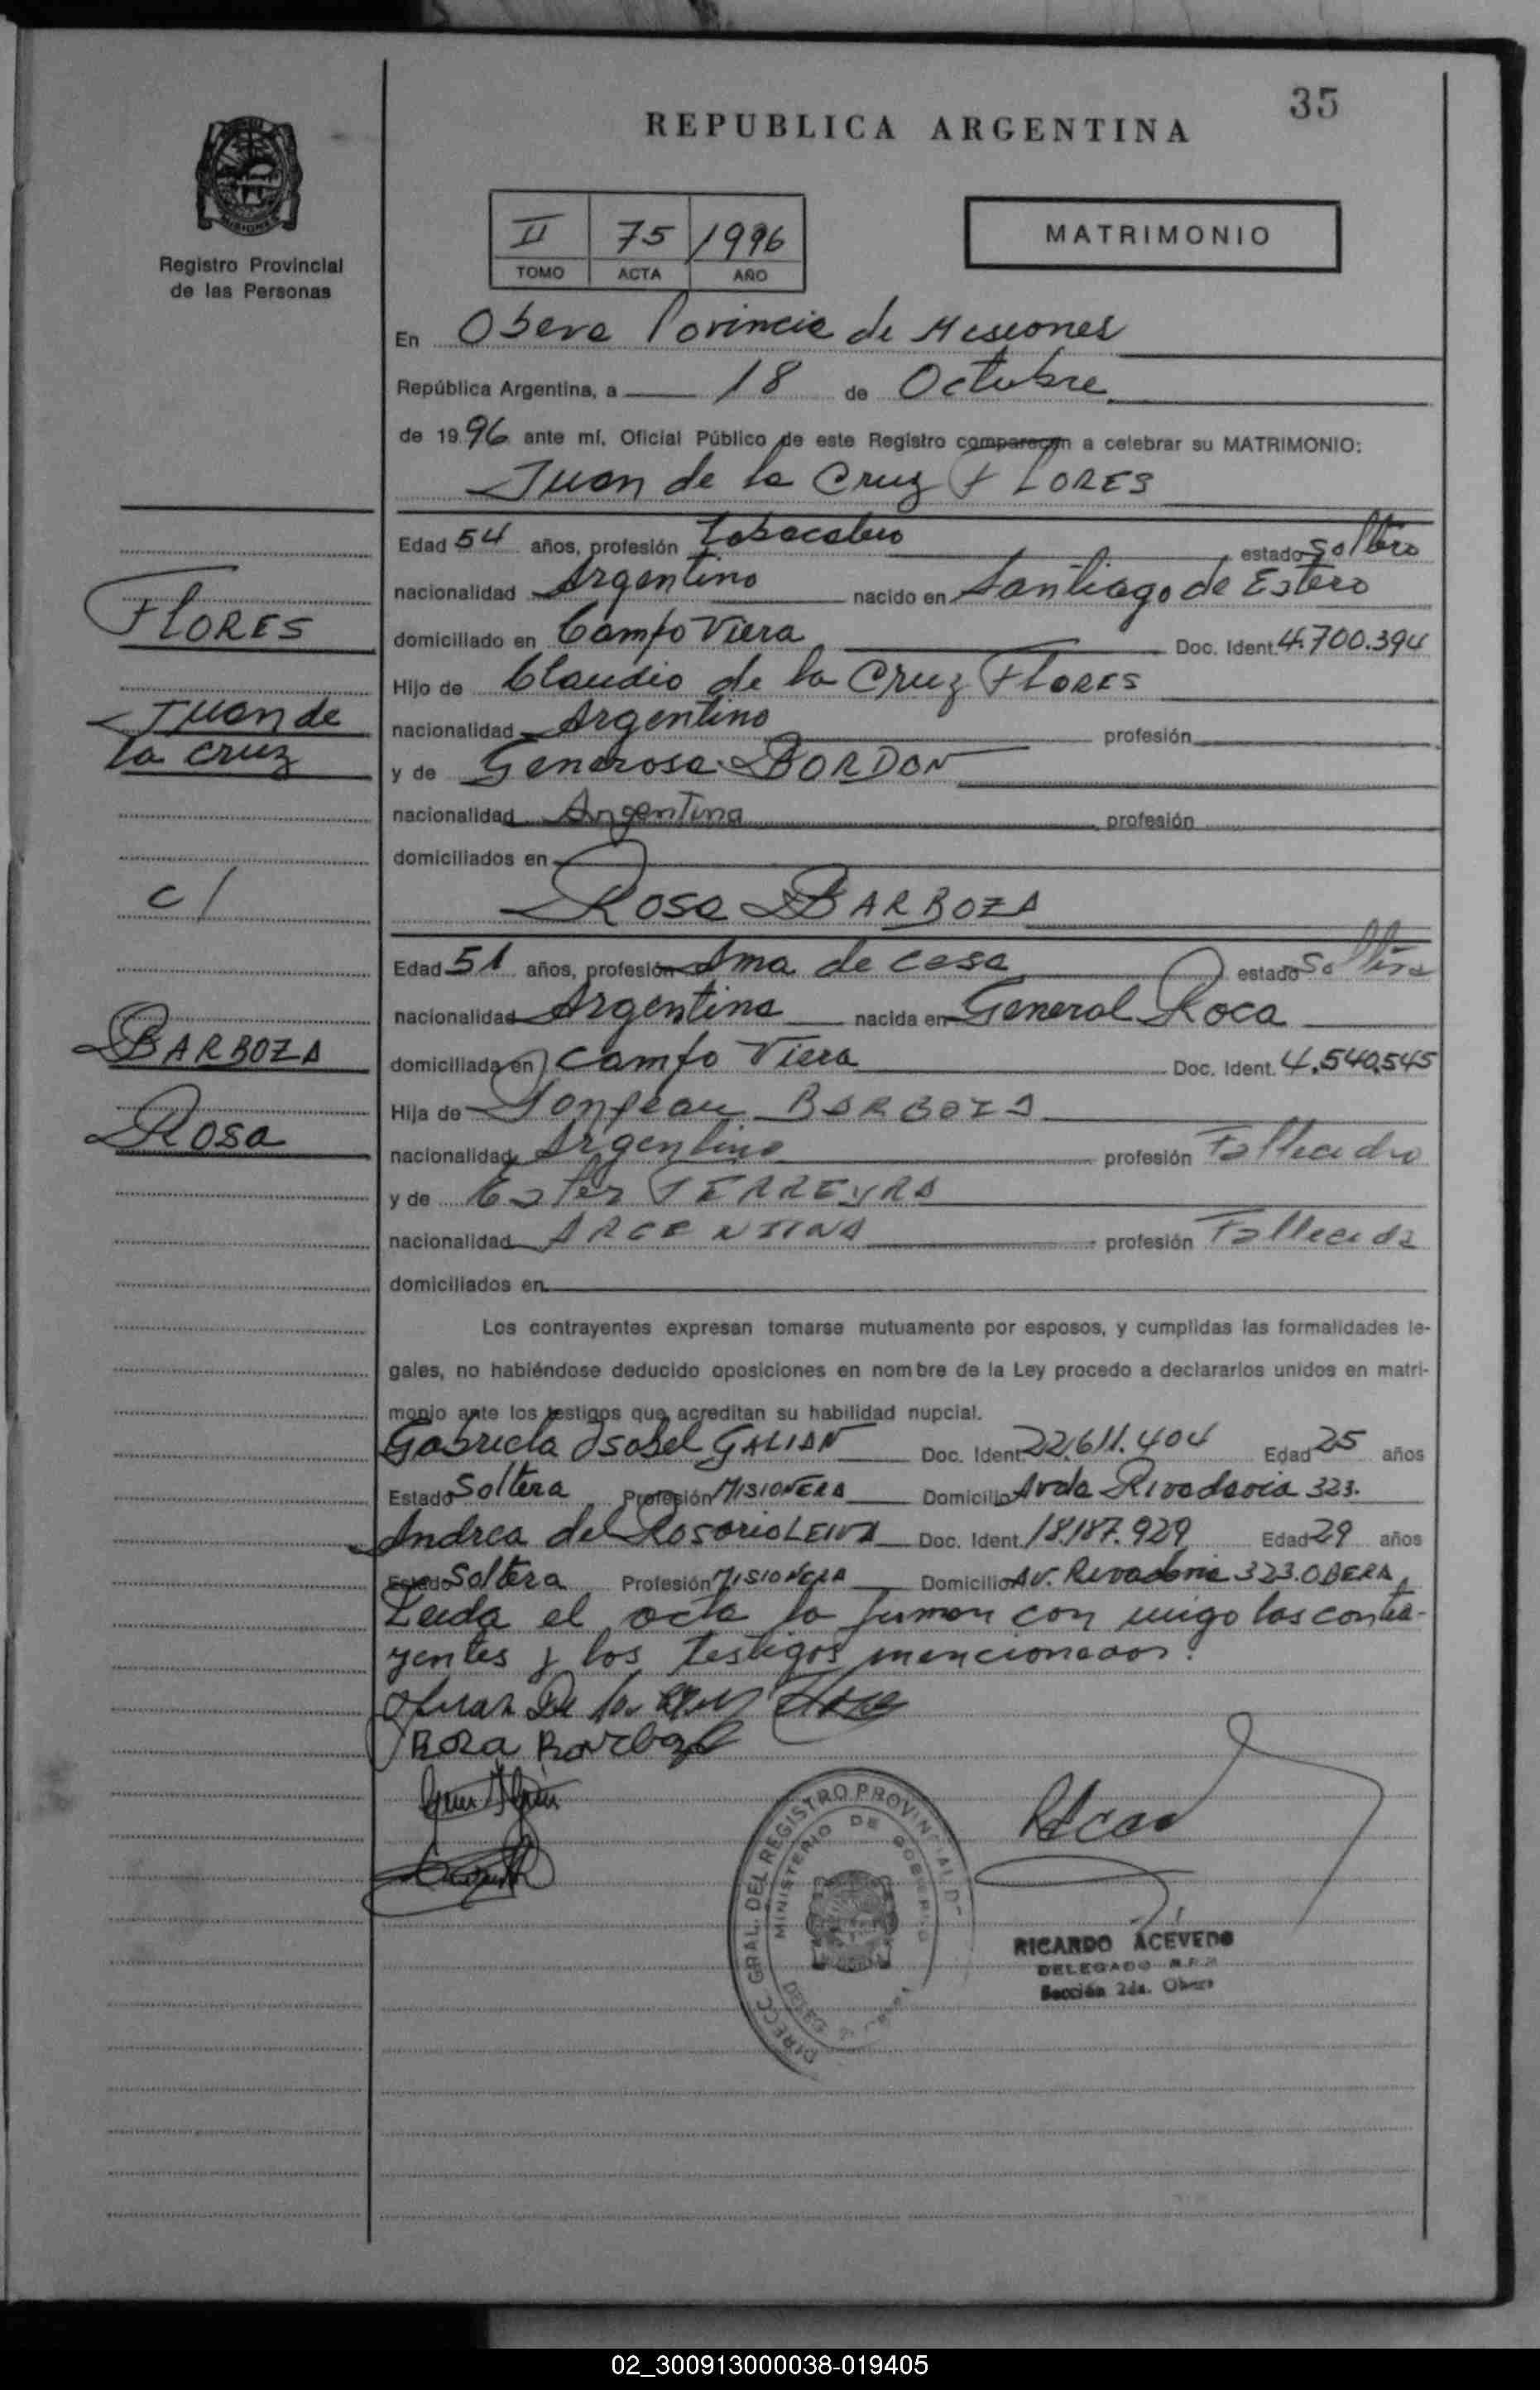 35
REPUBLICA ARGENTINA
Registro Provincial
de las Personas
II 75 1996
TOMO ACTA AÑO
MATRIMONIO
En Obera Povincia de Misiones
República Argentina, a 18 de Octubre
de 1996 ante mí, Oficial Público de este Registro comparecen a celebrar su MATRIMONIO:
Juan de la Cruz FLORES
Edad 54 años, profesión Tabacalero estado Soltero
nacionalidad Argentino nacido en Santiago de Estero
domiciliado en Campo Viera Doc. Ident. 4.700.394
Hijo de Claudio de la Cruz FLORES
nacionalidad Argentino profesión
y de Generosa BORDON
nacionalidad Argentina profesión
domiciliados en
Rosa BARBOZA
Edad 51 años, profesión Ama de casa estado Soltera
nacionalidad Argentina nacida en General Roca
domiciliada en Campo Viera Doc. Ident. 4.540.545
Hija de BARBOZA
nacionalidad Argentino profesión Fallecido
y de Ester FERREYRA
nacionalidad ARGENTINA profesión Fallecida
domiciliados en
FLORES
Juan de
la cruz
c/
BARBOZA
Rosa
Los contrayentes expresan tomarse mutuamente por esposos, y cumplidas las formalidades le-
gales, no habiéndose deducido oposiciones en nombre de la Ley procedo a declararlos unidos en matri-
monio ante los testigos que acreditan su habilidad nupcial.
Gabriela Isabel GALIAN Doc. Ident. 22.611.404 Edad 25 años
Estado Soltera Profesión MISIONERA Domicilio Avda Rivadavia 323.
Andrea del Rosario LEIVA Doc. Ident. 18.187.929 Edad 29 años
Estado Soltera Profesión MISIONERA Domicilio AV. Rivadavia 323. OBERA
Leida el acta la firman con migo los contra-
yentes y los testigos mencionados.
Juan De la Cruz Flore
Rosa Barboza
DIRECC. GRAL. DEL REGISTRO PROVINCIAL D
MINISTERIO DE GOBIERNO
RICARDO ACEVEDO
DELEGADO R.P.P.
Sección 2da. Obera
02_300913000038-019405